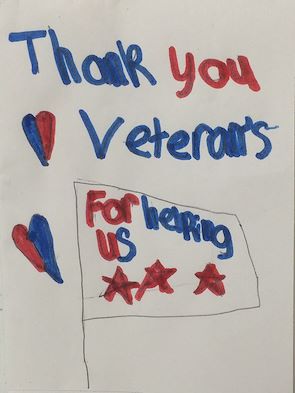 Thank you
Veterans
For helping
us